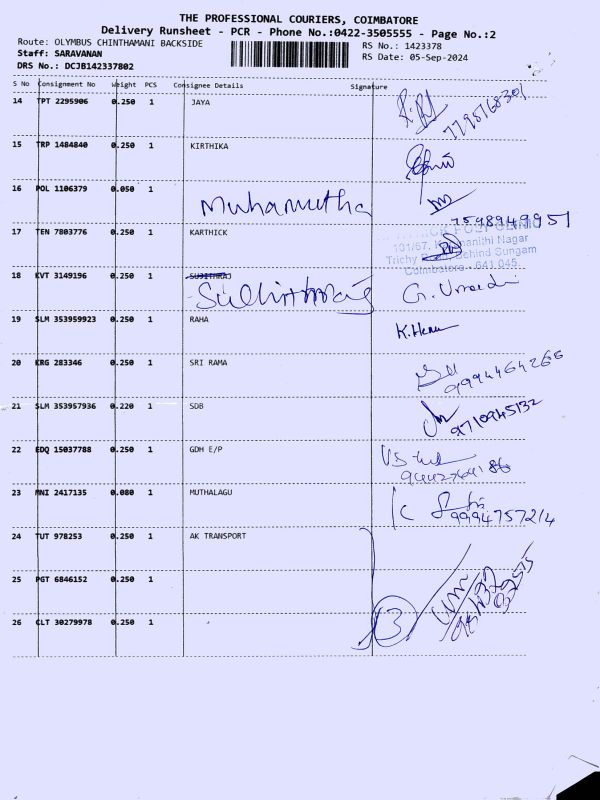 THE PROFESSIONAL COURIERS, COIMBATORE
Delivery Runsheet - PCR - Phone No.:0422-3505555 - Page No.:2
Route: OLYMBUS CHINTHAMANI BACKSIDE RS No.: 1423378
Staff: SARAVANAN RS Date: 05-Sep-2024
DRS No.: DCJB142337802
S No Consignment No Weight PCS Consignee Details Signature
14 TPT 2295906 0.250 1 JAYA
15 TRP 1484840 0.250 1 KIRTHIKA
16 POL 1106379 0.050 1
Muhamutha
7598949951
17 TEN 7803776 0.250 1 KARTHICK
101/67, Nagar
Trichy Behind Sungam
Coimbatore - 641 045
18 KVT 3149196 0.250 1 SUJITHRAJ
19 SLM 353959923 0.250 1 RAHA
K.Hema
20 KRG 283346 0.250 1 SRI RAMA
9994464266
21 SLM 353957936 0.220 1 SDB
9710945132
22 EDQ 15037788 0.250 1 GDH E/P
23 MNI 2417135 0.080 1 MUTHALAGU
9994757214
24 TUT 978253 0.250 1 AK TRANSPORT
25 PGT 6846152 0.250 1
26 CLT 30279978 0.250 1
3